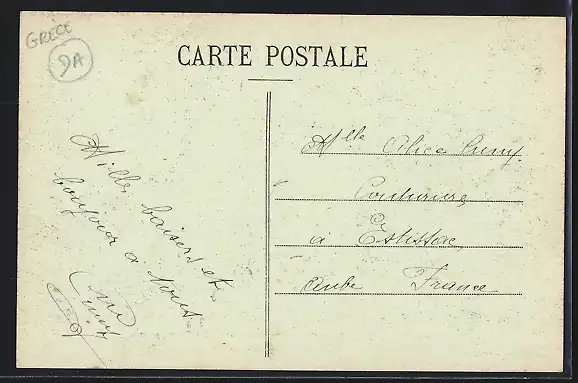 GRECE
9A
CARTE POSTALE
Mille baisers et
bonjour a tous
Mlle Alice Cuny
Couturière
à Estissac
Aube France